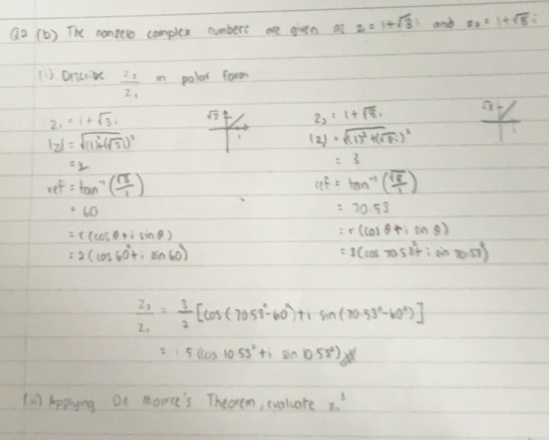 Q2 (b) The nonzero complex numbers are given as z₁ = 1+√3 i and z₂ = 1+√8 i
(i) Describe z₂/z₁ in polar form
z₁ = 1+√3 i
|z| = √(1)²+(√3i)²
= 2
ref = tan⁻¹(√3/1)
= 60
= r(cos θ + i sin θ)
= 2(cos 60°+ i sin 60°)
√3
z₂ = 1+√8 i
|z| = √(1)²+(√8i)²
= 3
ref = tan⁻¹(√8/1)
= 70.53
= r(cos θ + i sin θ)
= 3(cos 70.53°+ i sin 70.53°)
z₂/z₁ = 3/2 [cos(70.53°-60°)+i sin(70.53°-60°)]
= 1.5(cos 10.53°+i sin 10.53°)
(ii) Applying De Moivre's Theorem, evaluate